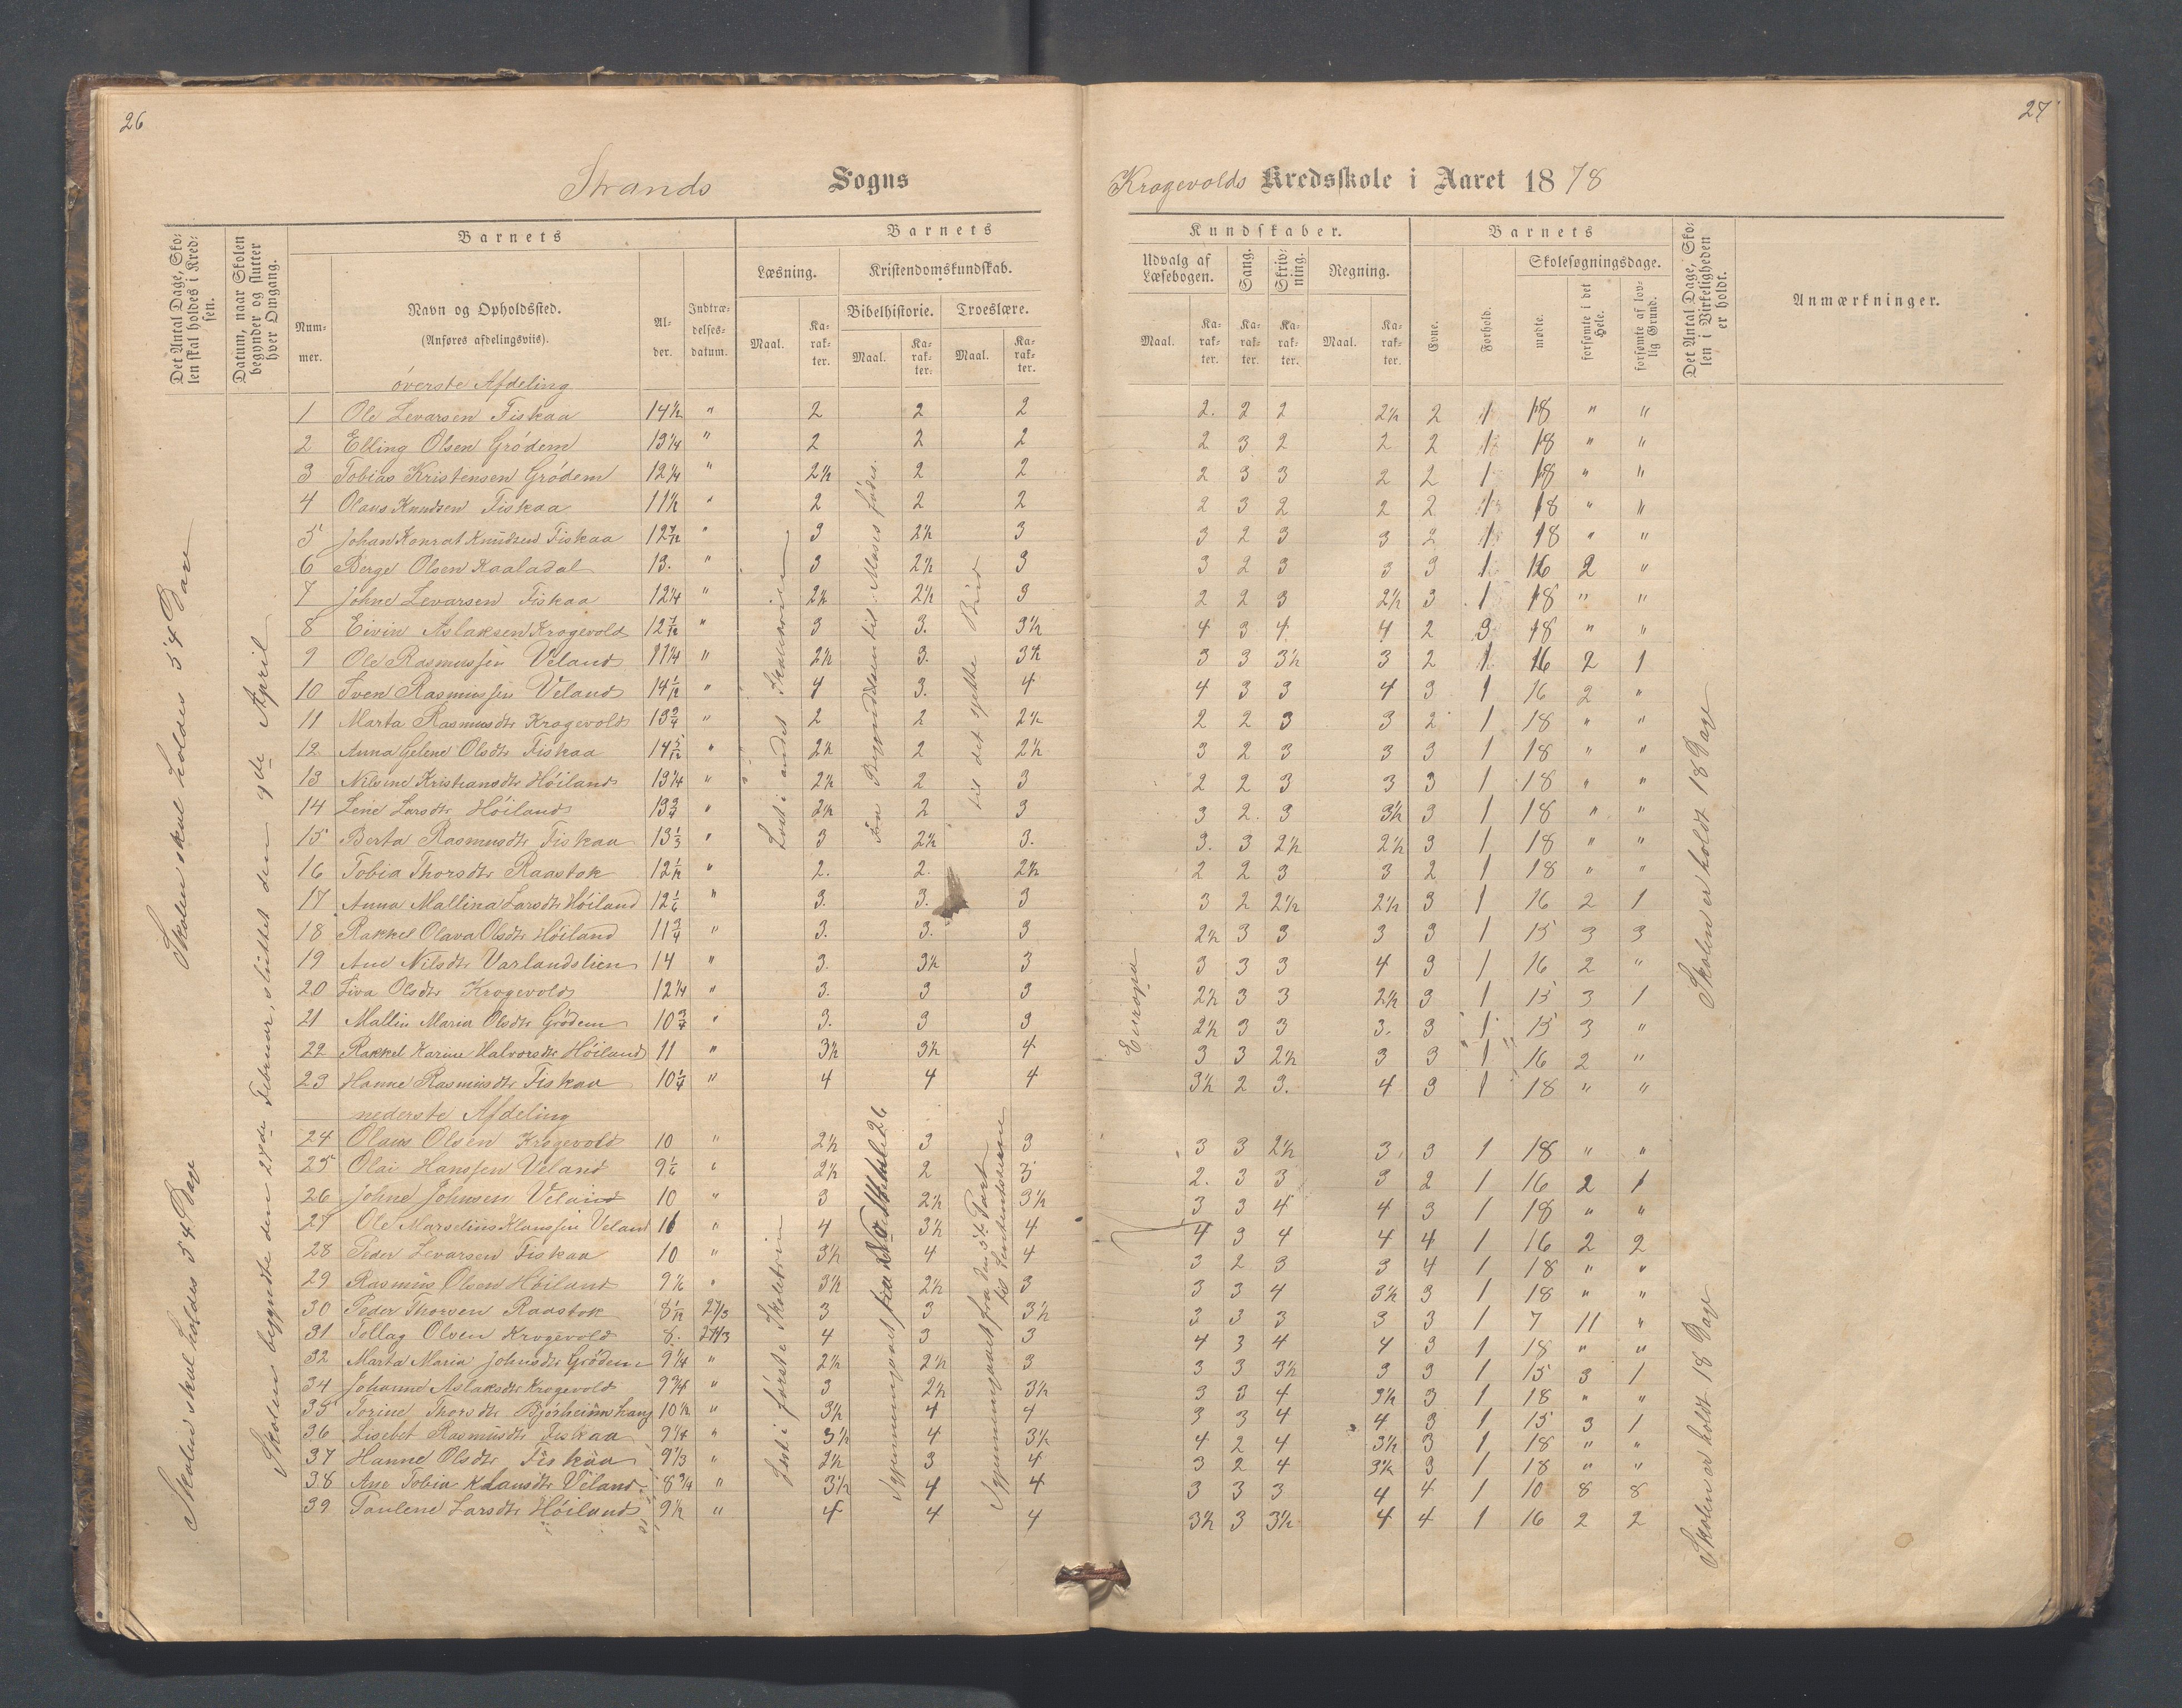 26
27
Strands Sogns
Krogevolds Kredsskole i Aaret 1878
Det Antal Dage, Sko-
len skal holdes i Kred-
sen.
Datum, naar Skolen
begynder og slutter
hver Omgang.
Barnets
Num-
mer.
Navn og Opholdssted.
(Anføres afdelingsviis).
Al-
der.
Indtræ-
delses-
datum.
Barnets
Læsning.
Maal.
Ka-
rak-
ter.
Kristendomskundskab.
Bibelhistorie.
Maal.
Ka-
rak-
ter.
Troeslære.
Maal.
Ka-
rak-
ter.
Kundskaber.
Udvalg af
Læsebogen.
Maal.
Ka-
rak-
ter.
Sang.
Ka-
rak-
ter.
Skriv-
ning.
Ka-
rak-
ter.
Regning.
Maal.
Ka-
rak-
ter.
Barnets
Evne.
Forhold.
Skolesøgningsdage.
mødte.
forsømte i det
Hele.
forsømte af lov-
lig Grund.
Det Antal Dage, Sko-
len i Virkeligheden
er holdt.
Anmærkninger.
Skolen skal holdes 54 Dage
Skolen skal holdes 54 Dage
Skolen begyndte den 27de Februar, sluttet den 9de April
øverste Afdeling
1 Ole Levarsen Fiskaa 14½ " 2 2 2 2. 2 2 2½ 2 1 18 " "
2 Elling Olsen Grødem 13¼ " 2 2 2 2 3 2 2 2 1 18 " "
3 Tobias Kristensen Grødem 12¼ " 2½ 2 2 2 3 3 2 2 1 18 " "
4 Olaus Knudsen Fiskaa 11½ " 2 2 2 2 3 2 2 2 1 18 " "
5 Johan Konrat Knudsen Fiskaa 12 7/12 " 3 2½ 3 3 2 3 3 2 1 18 " "
6 Berge Olsen Kaaladal 13. " 3 2½ 3 3 2 3 3 3 1 16 2 "
7 Johne Levarsen Fiskaa 12¼ " 2½ 2½ 3 2 2 3 2½ 3 1 18 " "
8 Eivin Aslaksen Krogevold 12 7/12 " 3 3. 3½ 4 3 4 4 2 3 18 " "
9 Ole Rasmussen Veland 11¼ " 2½ 3. 3½ 3 3 3½ 3 2 1 16 2 1
10 Sven Rasmussen Veland 14 1/12 " 4 3. 4 4 3 3 4 3 1 16 2 "
11 Marta Rasmusdtr Krogevold 13¾ " 2 2 2½ 2 2 3 3 2 1 18 " "
12 Anna Gelene Olsdtr Fiskaa 14 5/12 " 2½ 2 2½ 3 2 3 3 3 1 18 " "
13 Nilsine Kristiansdtr Høiland 13¼ " 2½ 2 3 2 2 3 3 3 1 18 " "
14 Lene Larsdtr Høiland 13¾ " 2½ 2 3 3 2. 3 3½ 3 1 18 " "
15 Berta Rasmusdtr Fiskaa 13⅓ " 3 2½ 3. 3. 3 2½ 2½ 3 1 18 " "
16 Tobia Thorsdtr Raastok 12½ " 2. 2. 2½ 2 2 3 3 2 1 18 " "
17 Anna Mallina Larsdtr Høiland 12⅙ " 3. 3. 3 3 2 2½ 2½ 3 1 16 2 1
18 Rakkel Olava Olsdtr Høiland 11¾ " 3. 3. 3 2½ 3 3 3 3 1 15 3 3
19 Ane Nilsdtr Varlandslien 14 " 3. 3½ 3 3 3 3 4 3 1 16 2 "
20 Siva Olsdtr Krogevold 12¼ " 3. 3 3 2½ 3 3 2½ 3 1 15 3 1
21 Mallin Maria Olsdtr Grødem 10¾ " 3. 3 3 2½ 3 3 3. 3 1 15 3 "
22 Rakkel Karine Halvorsdtr Høiland 11 " 3½ 3½ 4 3 3 2½ 3 3 1 16 2 "
23 Hanne Rasmusdtr Fiskaa 10¼ " 4 4 4 3½ 2 3. 4 3 1 18 " "
Læst i andet Skoletrin
Fra Begyndelsen til Moses fødes.
til det sjette Bud
Europa
Skolen er holdt 18 Dage
nederste Afdeling
24 Olaus Olsen Krogevold 10 " 2½ 3 3 3 3 2½ 3. 3 1 18 " "
25 Olai Hanssen Veland 9⅙ " 2½ 2 3 2. 3 3 3 2 1 16 2 1
26 Johne Johnsen Veland 10 " 3 2½ 3½ 3 3 4 4 3 1 18 " "
27 Ole Marselius Klaussen Veland 11 " 4 3½ 4 4 3 4 4 4 1 16 2 2
28 Peder Levarsen Fiskaa 10 " 3½ 4 4 3 2 3 3 4 1 18 " "
29 Rasmus Olsen Høiland 9⅙ " 3½ 2½ 3 3 3 4 3½ 3 1 18 " "
30 Peder Thorsen Raastok 8 1/12 27/3 3 3 3½ 3 3 3 3 3 1 7 11 "
31 Tollag Olsen Krogevold 8. 27/3 4 3 3 4 3 4 4 3 1 18 " "
32 Marta Maria Johnsdtr Grødem 9¼ " 2½ 2½ 3 3 3 3½ 3 3 1 15 3 1
34 Johanne Aslaksdtr Krogevold 9¾ " 3 2½ 3½ 3 3 4 3½ 3 1 18 " "
35 Torine Thorsdtr Bjørheimshaug 10½ " 3½ 4 4 3 3 4 4 3 1 15 3 1
36 Lisebet Rasmusdtr Fiskaa 9¼ " 3½ 4 3½ 4 2 4 3½ 3 1 18 " "
37 Hanne Olsdtr Fiskaa 9⅓ " 2½ 3 4 3 2 4 3½ 3 1 18 " "
38 Ane Tobia Klausdtr Veland 8¾ " 3½ 4 4 3 3 3 4 4 1 10 8 8
39 Paulene Larsdtr Høiland 9½ " 4 4 4 3½ 3 3½ 4 4 1 16 2 2
Læst i første Skoletrin
Igjennemgaaet fra
26
Igjennemgaaet fra den 3die Part
til
Skolen er holdt 18 Dage